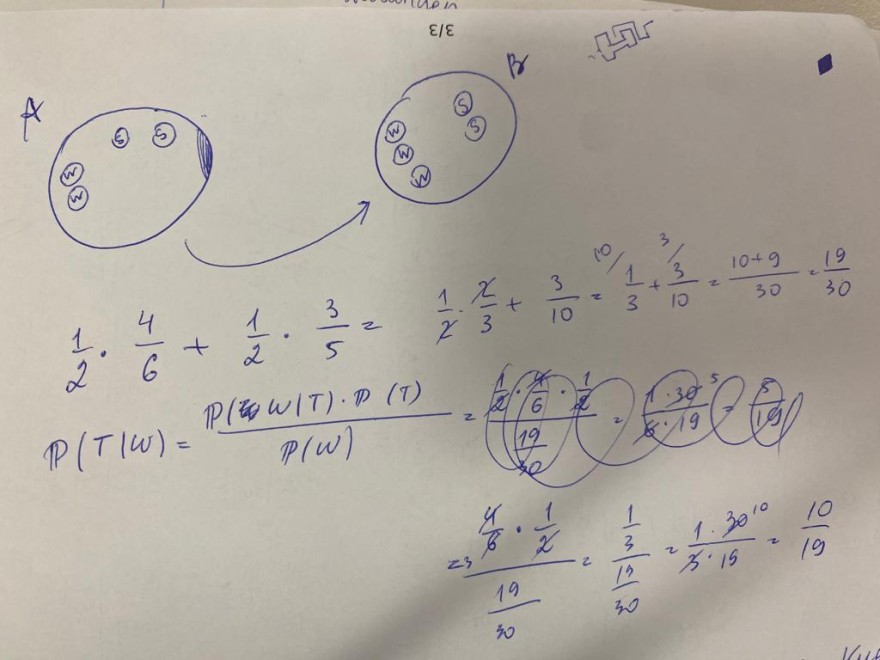 3/3
A
B
S S
W
W
S
S
W
W
W
1/2 · 4/6 + 1/2 · 3/5 = 1/2 · 2/3 + 3/10 = 10/ 1/3 + 3/ 3/10 = 10+9/30 = 19/30
P(T|W) = P(W|T) · P(T) / P(W) = 1/2 · 4/6 · 1/2 / 19/30 = 1·30 5 / 6·19 = 5/19
=3 4/6 · 1/2 / 19/30 = 1/3 / 19/30 = 1·30 10 / 3·19 = 10/19